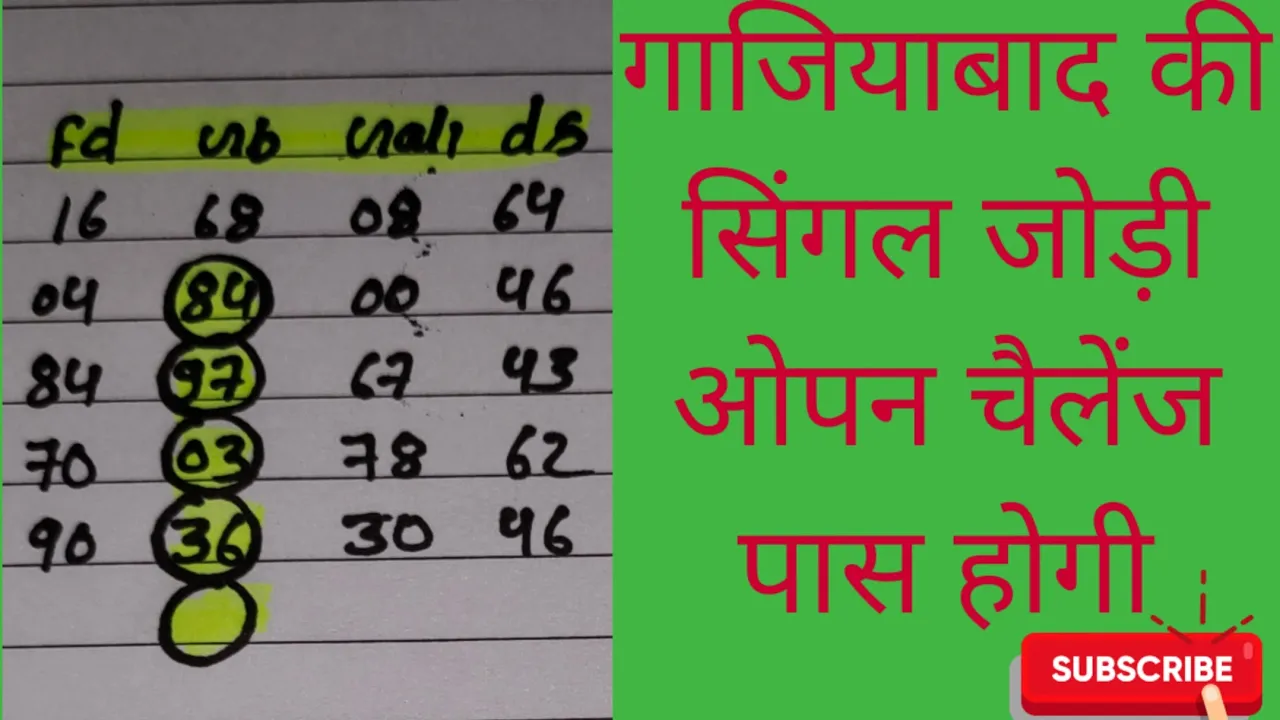 Fd Gb Gali ds
16 68 08 64
04 84 00 46
84 97 67 43
70 03 78 62
90 36 30 46
गाजियाबाद की
सिंगल जोड़ी
ओपन चैलेंज
पास होगी
SUBSCRIBE